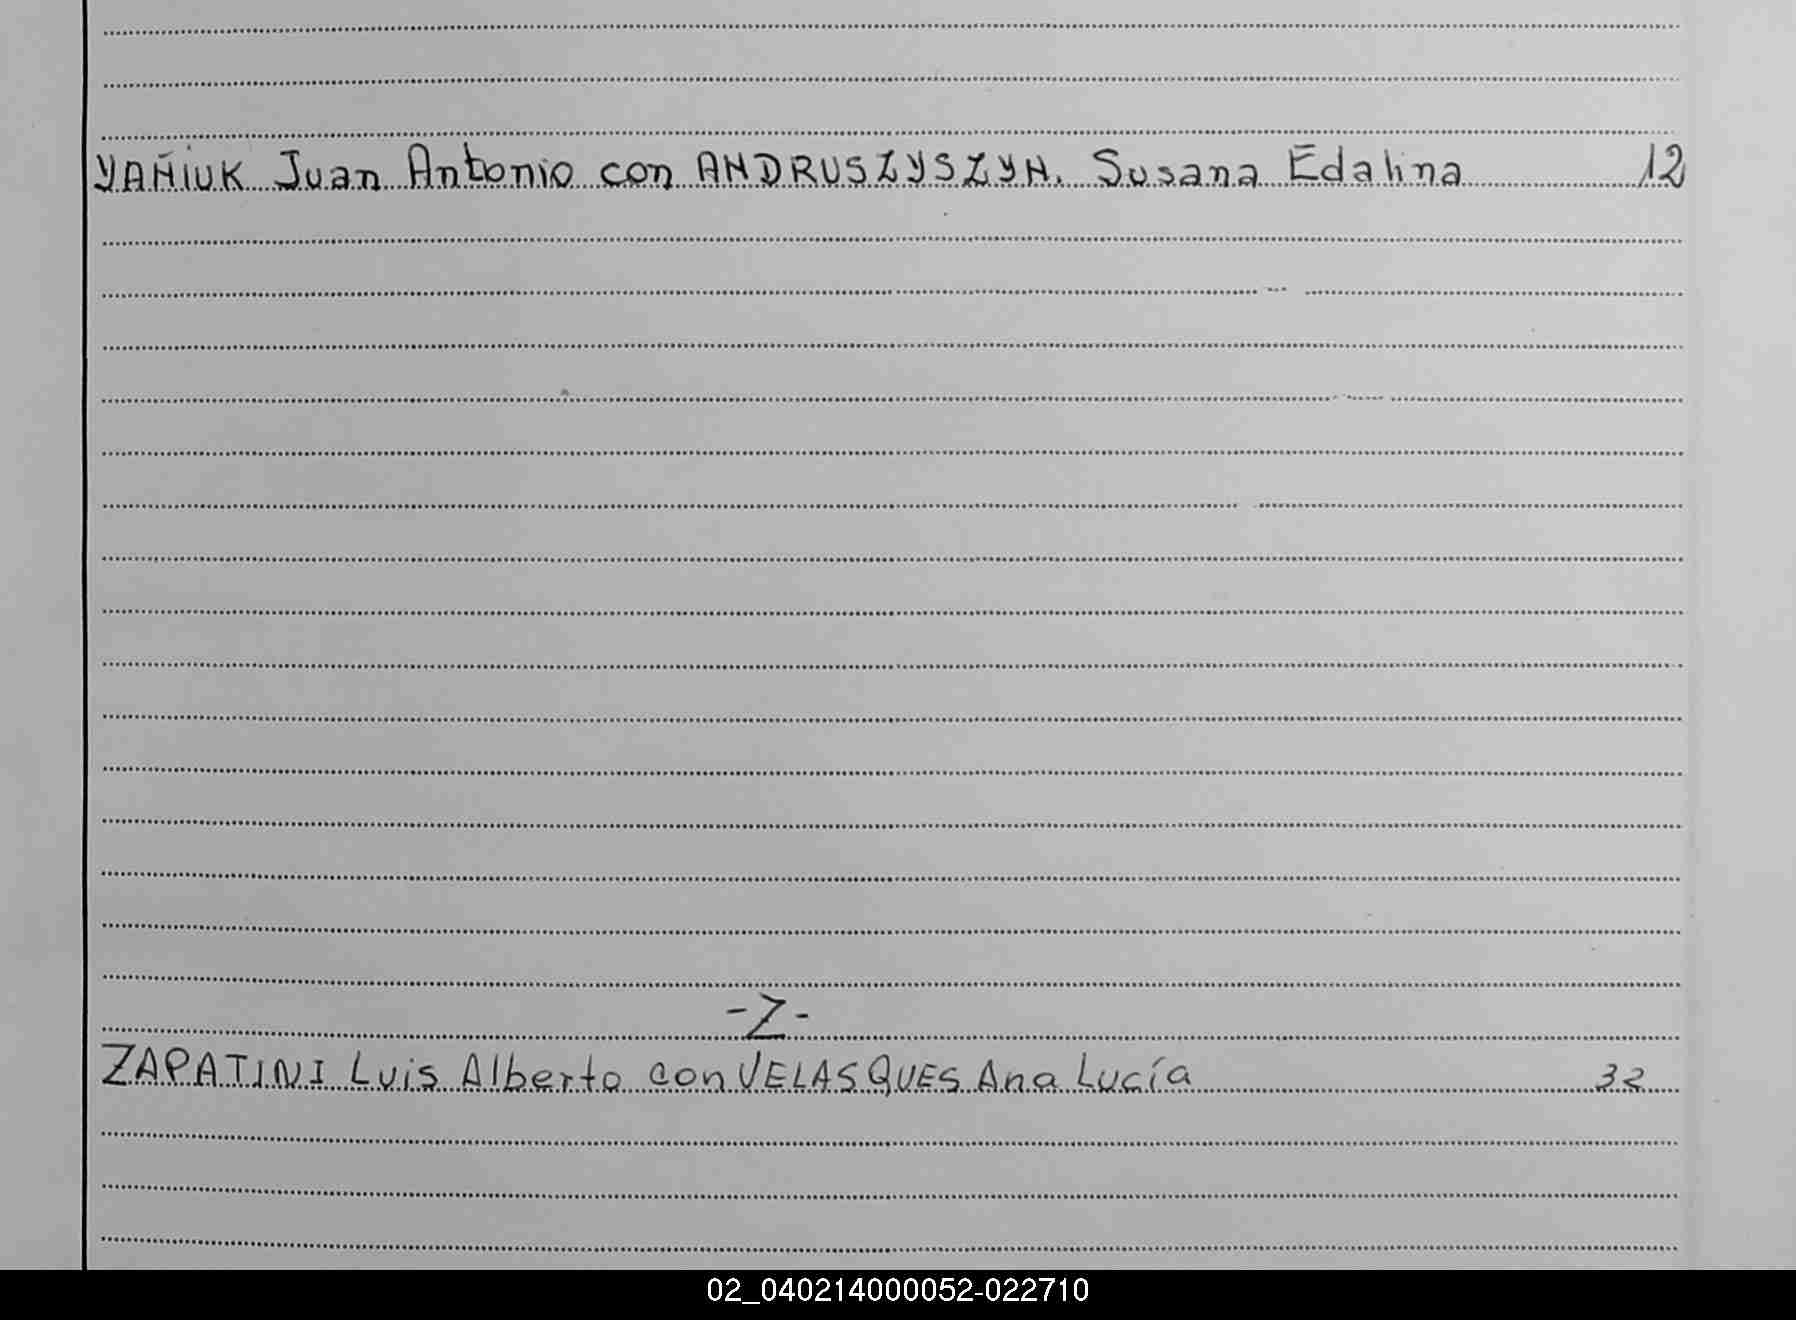 YAÑIUK Juan Antonio con ANDRUSZYSZYN. Susana Edalina 12
-Z-
ZAPATINI Luis Alberto con VELASQUES Ana Lucía 32
02_040214000052-022710